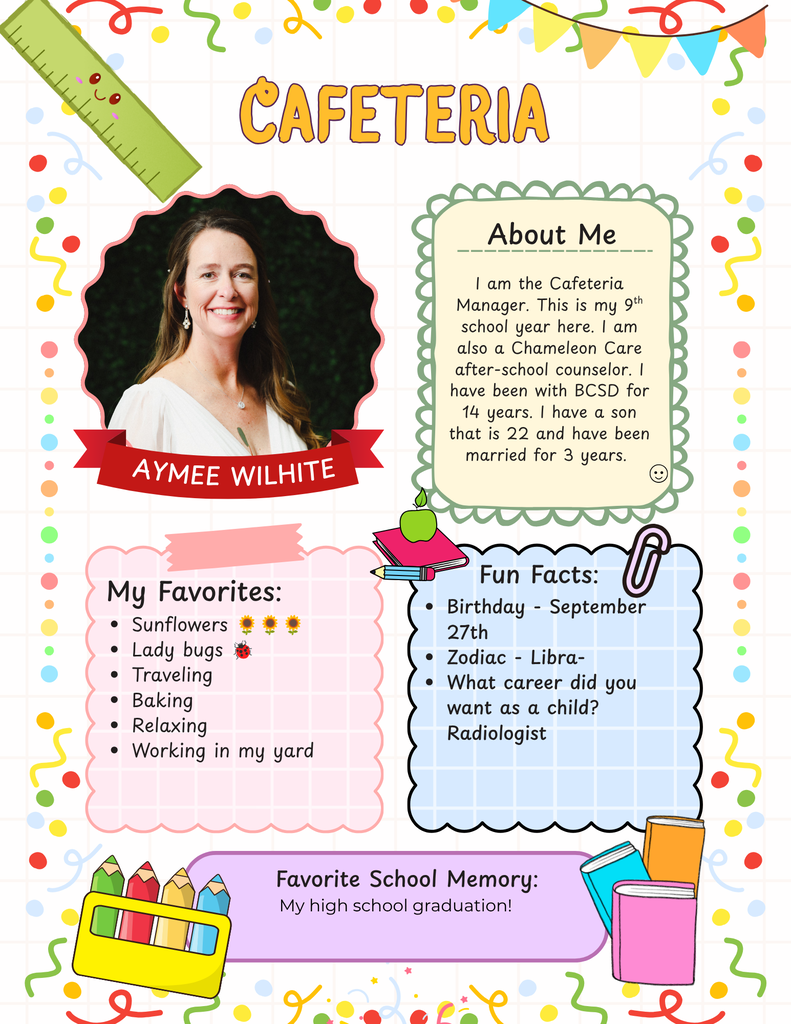 CAFETERIA
AYMEE WILHITE
About Me
I am the Cafeteria
Manager. This is my 9th
school year here. I am
also a Chameleon Care
after-school counselor. I
have been with BCSD for
14 years. I have a son
that is 22 and have been
married for 3 years.
My Favorites:
• Sunflowers 🌻🌻🌻
• Lady bugs 🐞
• Traveling
• Baking
• Relaxing
• Working in my yard
Fun Facts:
• Birthday - September
27th
• Zodiac - Libra-
• What career did you
want as a child?
Radiologist
Favorite School Memory:
My high school graduation!